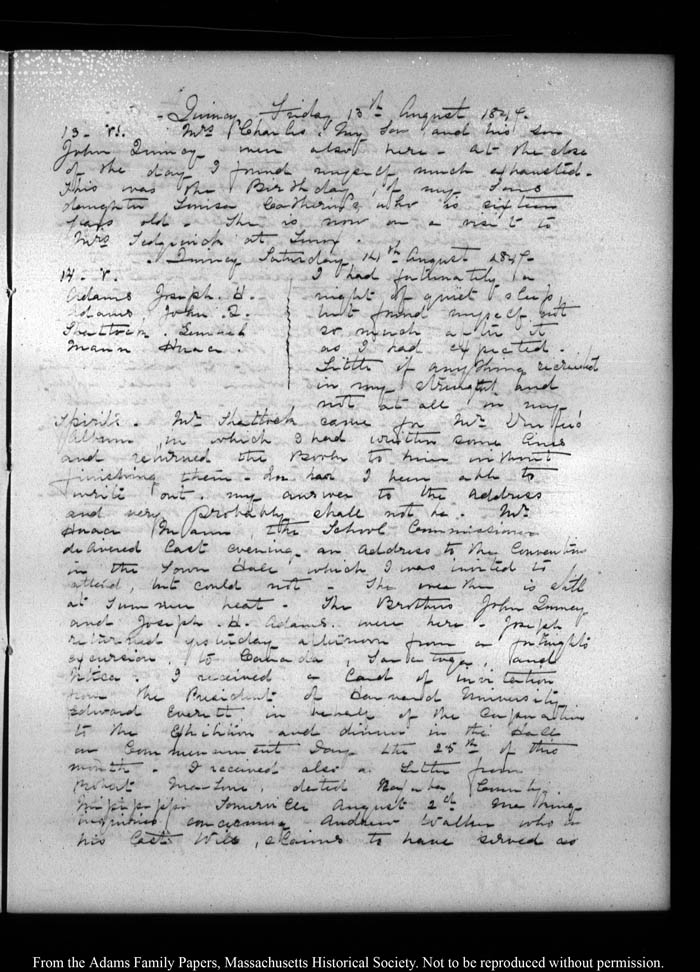 - Quincy Friday 13th August 184
13. V. Mrs Charles. My Son and his son
John Quincy were also here - at the close
of the day I found myself much exhausted.
This was the Birthday of my Sons
daughter Louisa Catherine, who is sixteen
years old. She is now on a visit to
Mrs Sedgwick at Lenox.
. Quincy Saturday 14th August 184
14. V.
Adams Joseph. H.
Adams John Q.
Shattuck. Lemuel
Mann Horace.
I had fortunately a
night of quiet sleep,
but found myself not
so much alert
as I had expected.
Little if any thing recruited
in my strength, and
not at all in my
Spirits. Mr Shattuck came for Mr
Album in which I had written some lines
and returned the Book to him without
finishing them. Nor have I been able to
write out my answer to the Address
and very probably shall not be. Mr
Horace Mann, the School Commissioner
delivered last evening an address to the Convention
in the Town Hall which I was invited to
attend, but could not. The weather is still
at Summer heat. The Brothers John Quincy
and Joseph. H. Adams were here. Joseph
returned yesterday afternoon from a fortnights
excursion, to Canada, Saratoga, and
Utica. I received a Card of invitation
from the President of Harvard University
Edward Everett in behalf of the Corporation
to the Exhibition and dinner in the Hall
on Commencement Day the 25th of this
month. I received also a Letter from
Robert dated County
Mississippi Somerville August 2d making
inquiries concerning Andrew Walker who in
his last Will, claims to have served as
From the Adams Family Papers, Massachusetts Historical Society. Not to be reproduced without permission.